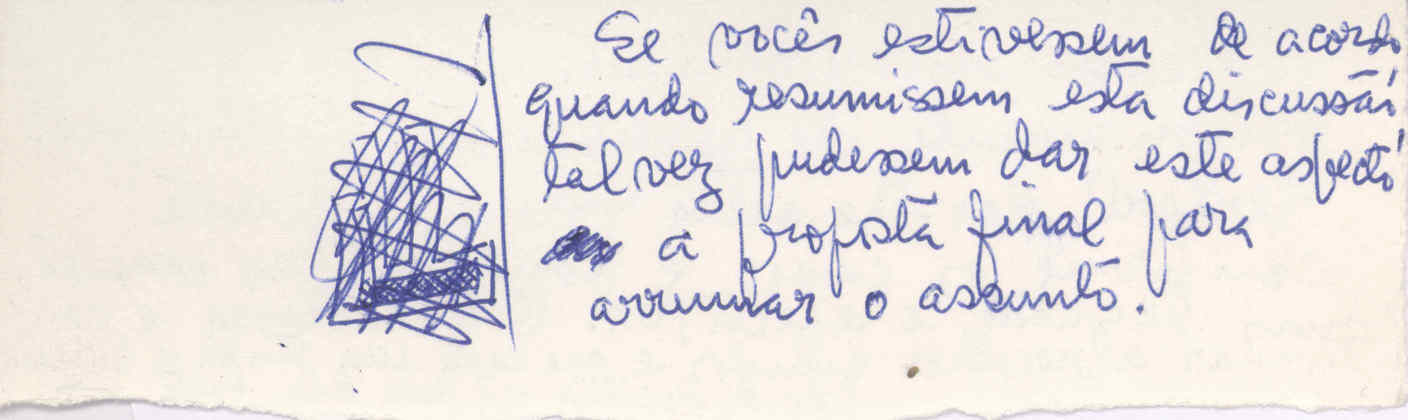 Se vocês estivessem de acordo
quando resumissem esta discussão
talvez pudessem dar este aspecto
a proposta final para
arrumar o assunto.